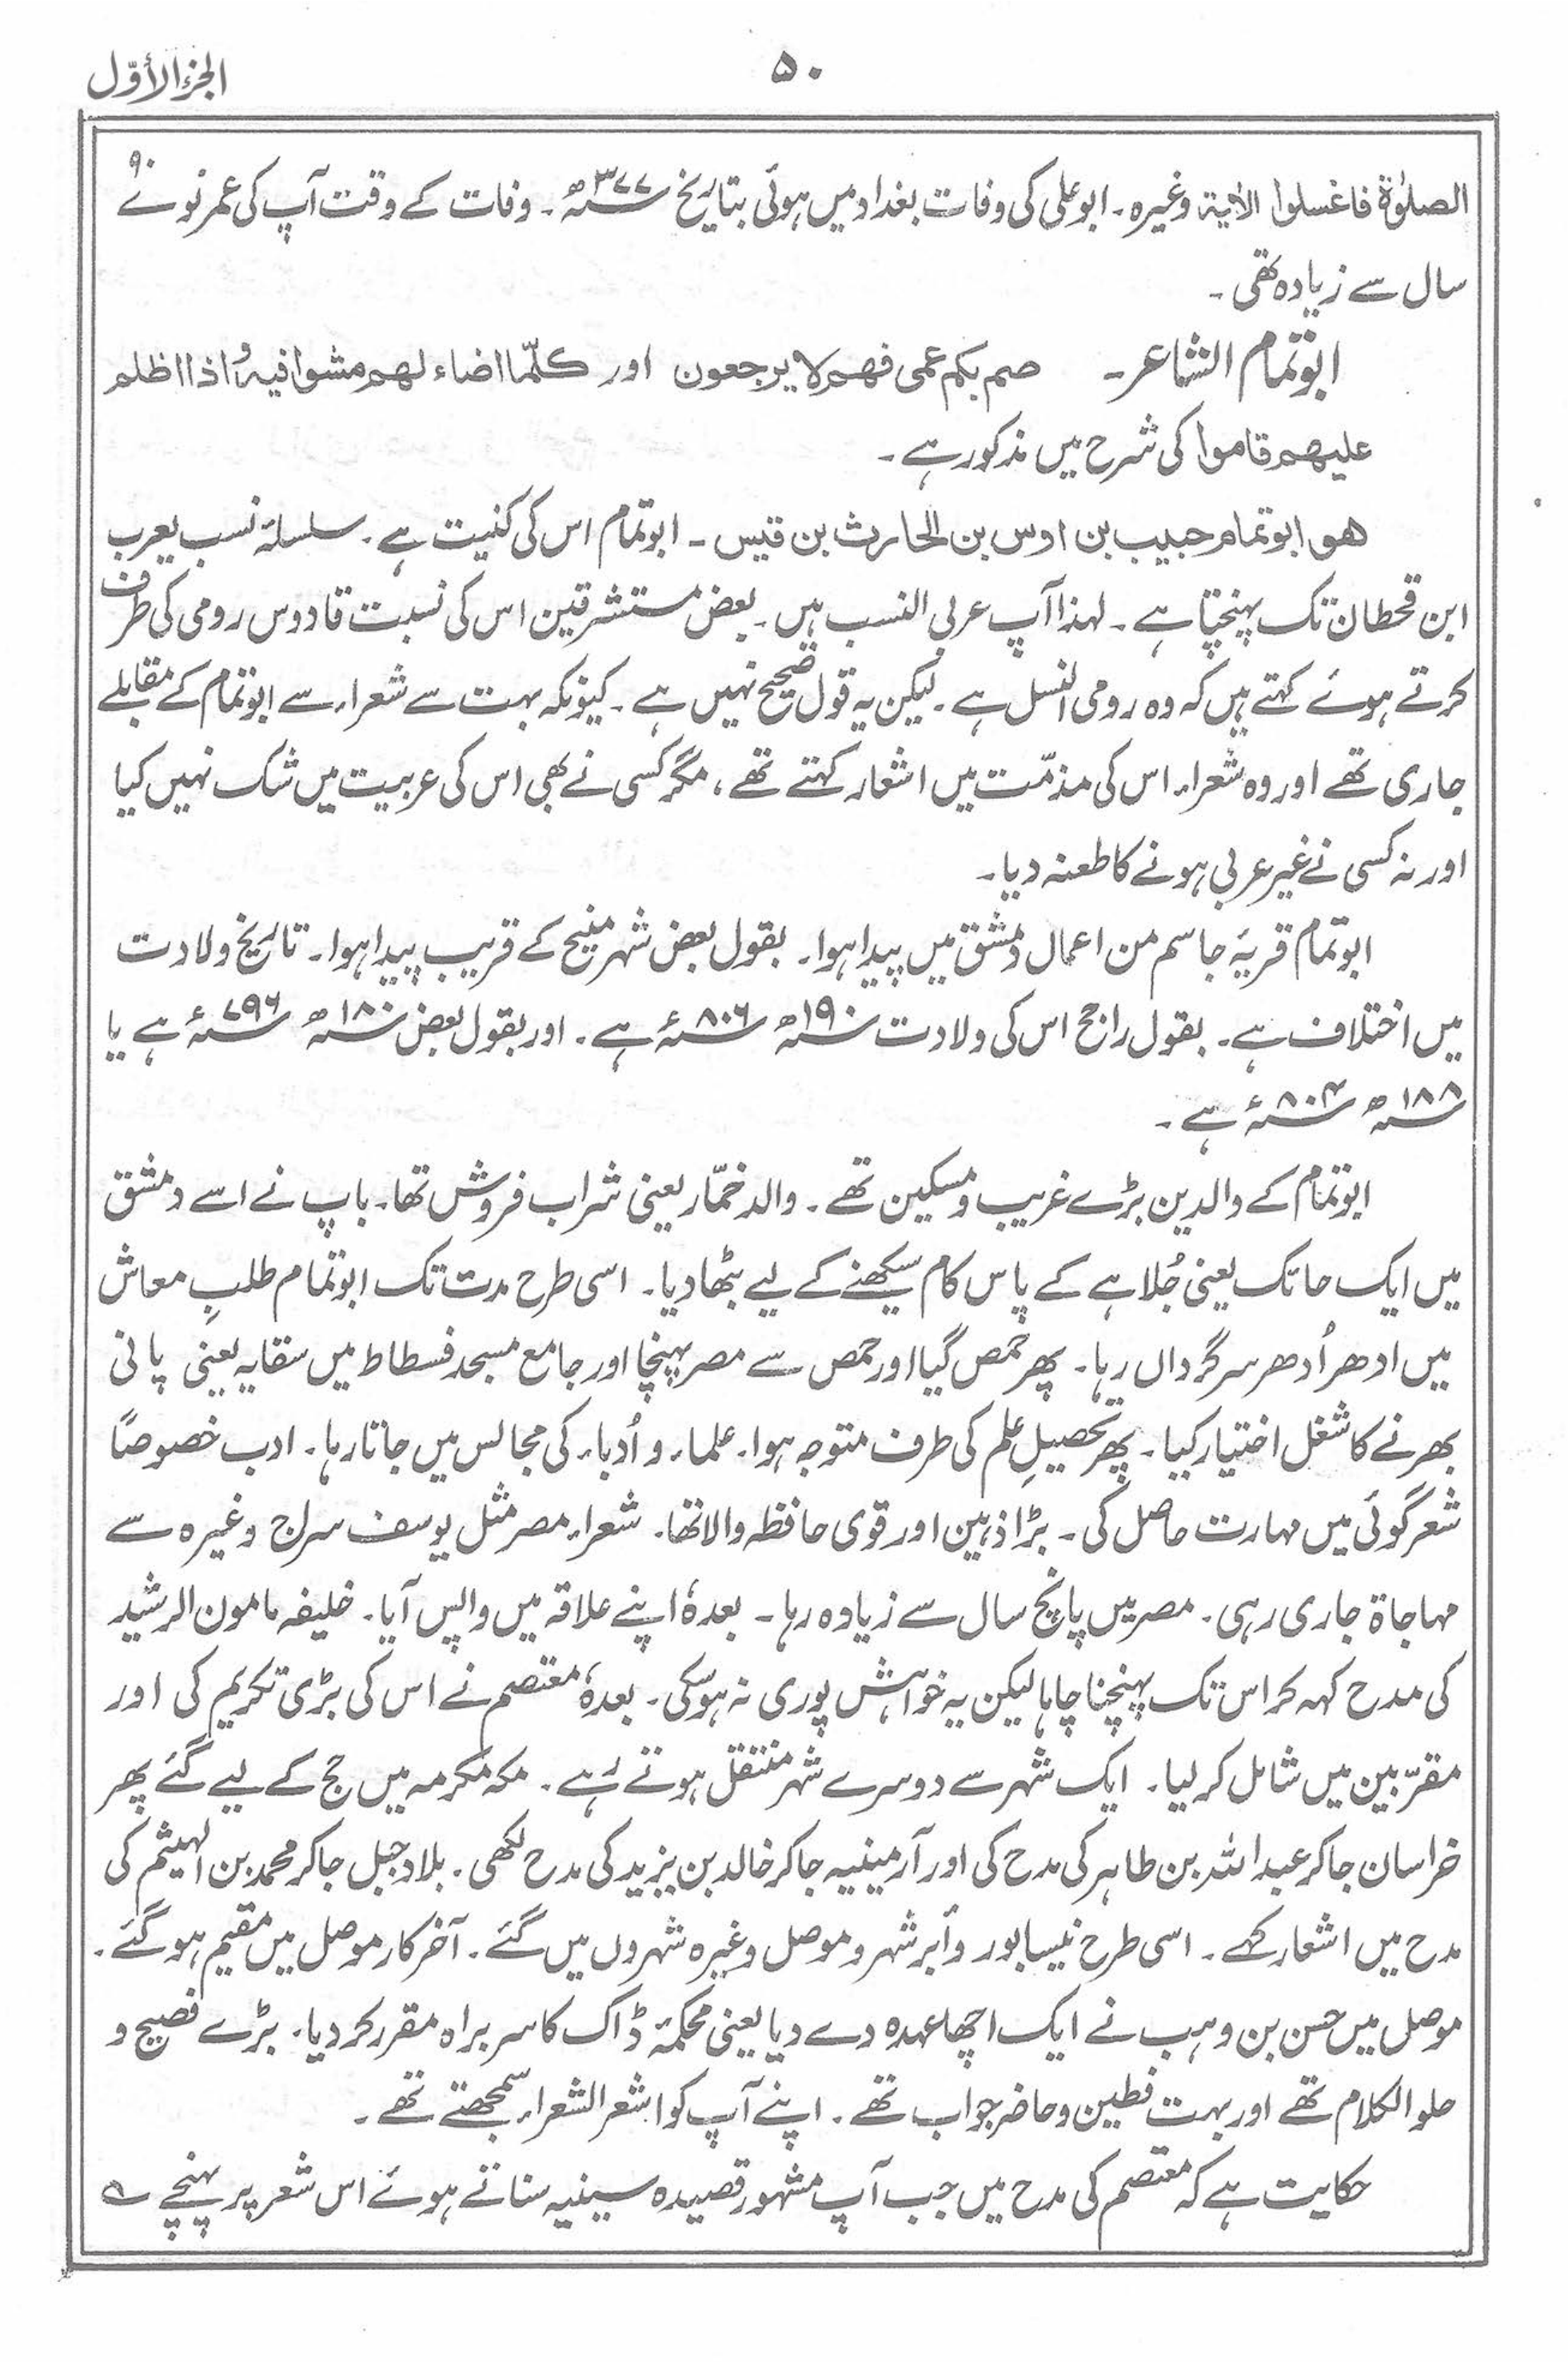 الجزء الأوّل
۵۰
الصلوٰۃ فاغسلوا الاٰیۃ وغیرہ۔ ابوعلی کی وفات بغداد میں ہوئی بتاریخ ۳۷۷ھ۔ وفات کے وقت آپ کی عمر نوے ۹۰
سال سے زیادہ تھی۔
ابوتمام الشاعر۔ صم بکم عمی فھم لا یرجعون اور کلّما اضاء لھم مشوا فیہ و اذا اظلم
علیھم قاموا کی شرح میں مذکور ہے۔
ھو ابوتمام حبیب بن اوس بن الحارث بن قیس۔ ابوتمام اس کی کنیت ہے۔ سلسلۂ نسب یعرب
ابن قحطان تک پہنچتا ہے۔ لہذا آپ عربی النسب ہیں۔ بعض مستشرقین اس کی نسبت قادوس رومی کی طرف
کرتے ہوئے کہتے ہیں کہ وہ رومی النسل ہے۔ لیکن یہ قول صحیح نہیں ہے۔ کیونکہ بہت سے شعراء سے ابوتمام کے مقابلے
جاری تھے اور وہ شعراء اس کی مذمّت میں اشعار کہتے تھے، مگر کسی نے بھی اس کی عربیت میں شک نہیں کیا
اور نہ کسی نے غیر عربی ہونے کا طعنہ دیا۔
ابوتمام قریۂ جاسم من اعمال دمشق میں پیدا ہوا۔ بقول بعض شہر منبج کے قریب پیدا ہوا۔ تاریخ ولادت
میں اختلاف ہے۔ بقول راجح اس کی ولادت ۱۹۰ھ ۸۰۶ء ہے۔ اور بقول بعض ۱۸۰ھ ۷۹۶ء ہے یا
۱۸۸ھ ۸۰۴ء ہے۔
ابوتمام کے والدین بڑے غریب و مسکین تھے۔ والد خمّار یعنی شراب فروش تھا۔ باپ نے اسے دمشق
میں ایک حائک یعنی جُلاہے کے پاس کام سیکھنے کے لیے بٹھا دیا۔ اسی طرح مدت تک ابوتمام طلبِ معاش
میں ادھر اُدھر سرگرداں رہا۔ پھر حمص گیا اور حمص سے مصر پہنچا اور جامع مسجد فسطاط میں سقایہ یعنی پانی
بھرنے کا شغل اختیار کیا۔ پھر تحصیلِ علم کی طرف متوجہ ہوا۔ علماء و اُدباء کی مجالس میں جاتا رہا۔ ادب خصوصًا
شعر گوئی میں مہارت حاصل کی۔ بڑا ذہین اور قوی حافظہ والا تھا۔ شعراء مصر مثل یوسف سراج وغیرہ سے
مہاجاۃ جاری رہی۔ مصر میں پانچ سال سے زیادہ رہا۔ بعدہٗ اپنے علاقہ میں واپس آیا۔ خلیفہ مامون الرشید
کی مدح کہہ کر اس تک پہنچنا چاہا لیکن یہ خواہش پوری نہ ہو سکی۔ بعدہٗ معتصم نے اس کی بڑی تکریم کی اور
مقرّبین میں شامل کر لیا۔ ایک شہر سے دوسرے شہر منتقل ہوتے رہے۔ مکہ مکرمہ میں حج کے لیے گئے پھر
خراسان جا کر عبد اللہ بن طاہر کی مدح کی اور آرمینیہ جا کر خالد بن یزید کی مدح لکھی۔ بلاد جبل جا کر محمد بن الہیثم کی
مدح میں اشعار کہے۔ اسی طرح نیسابور و اُبر شہر و موصل وغیرہ شہروں میں گئے۔ آخر کار موصل میں مقیم ہو گئے۔
موصل میں حسن بن وہب نے ایک اچھا عہدہ دے دیا یعنی محکمۂ ڈاک کا سربراہ مقرر کر دیا۔ بڑے فصیح و
حلو الکلام تھے اور بہت فطین و حاضر جواب تھے۔ اپنے آپ کو اشعر الشعراء سمجھتے تھے۔
حکایت ہے کہ معتصم کی مدح میں جب آپ مشہور قصیدہ سینیہ سناتے ہوئے اس شعر پر پہنچے ؎